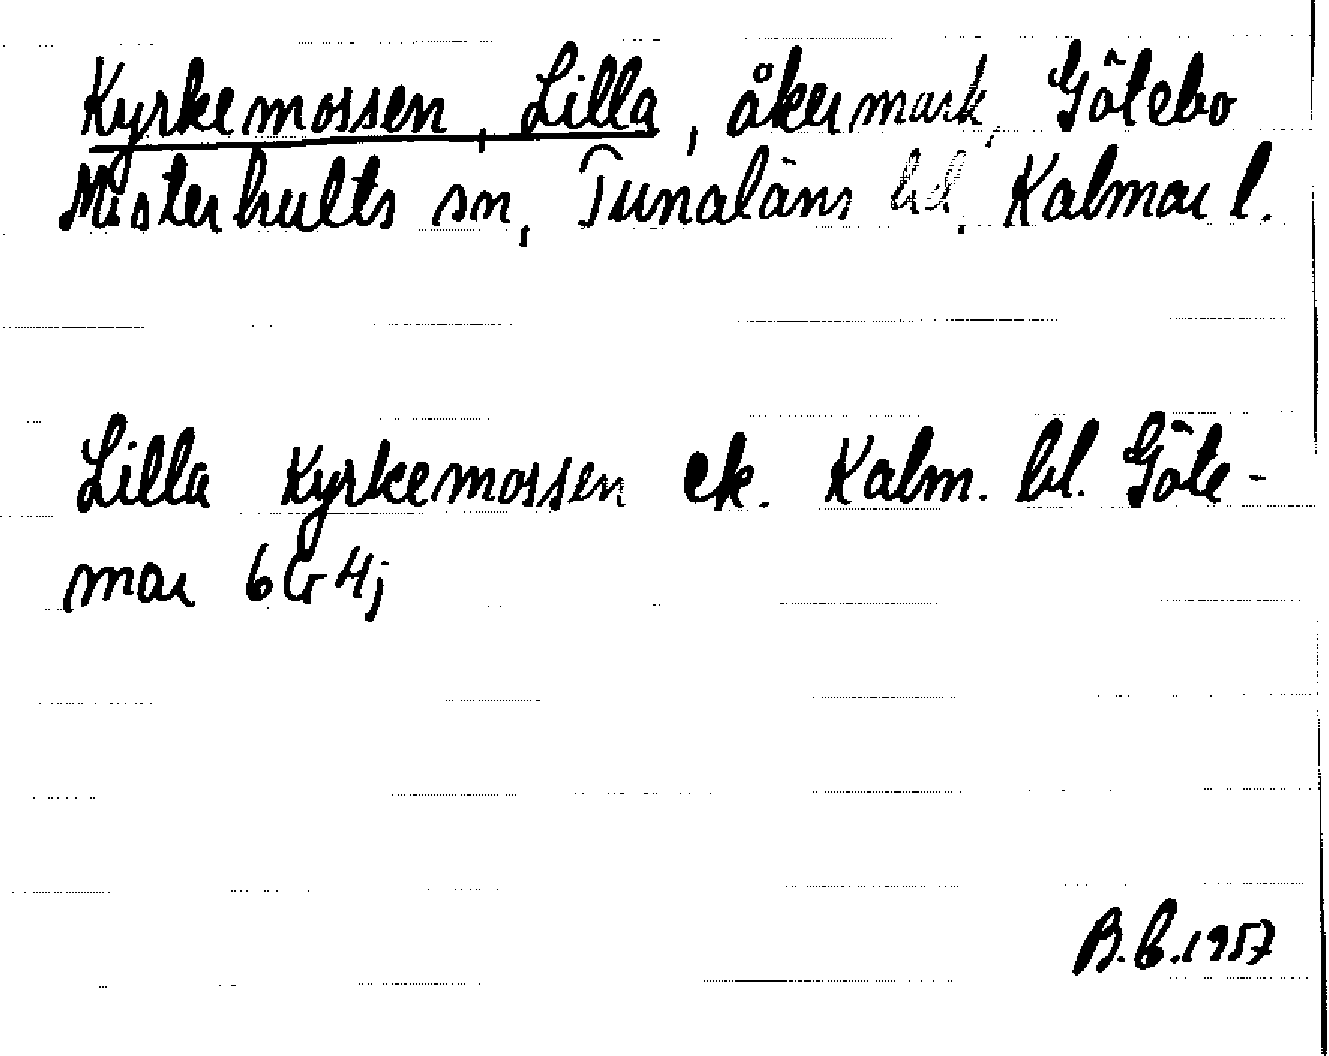 Kyrkemossen, Lilla, åkermark, Götebo
Misterhults sn, Tunaläns hd, Kalmar l.
Lilla Kyrkemossen ek. Kalm. bl. Göte-
mar 6G4j
B.C.1957